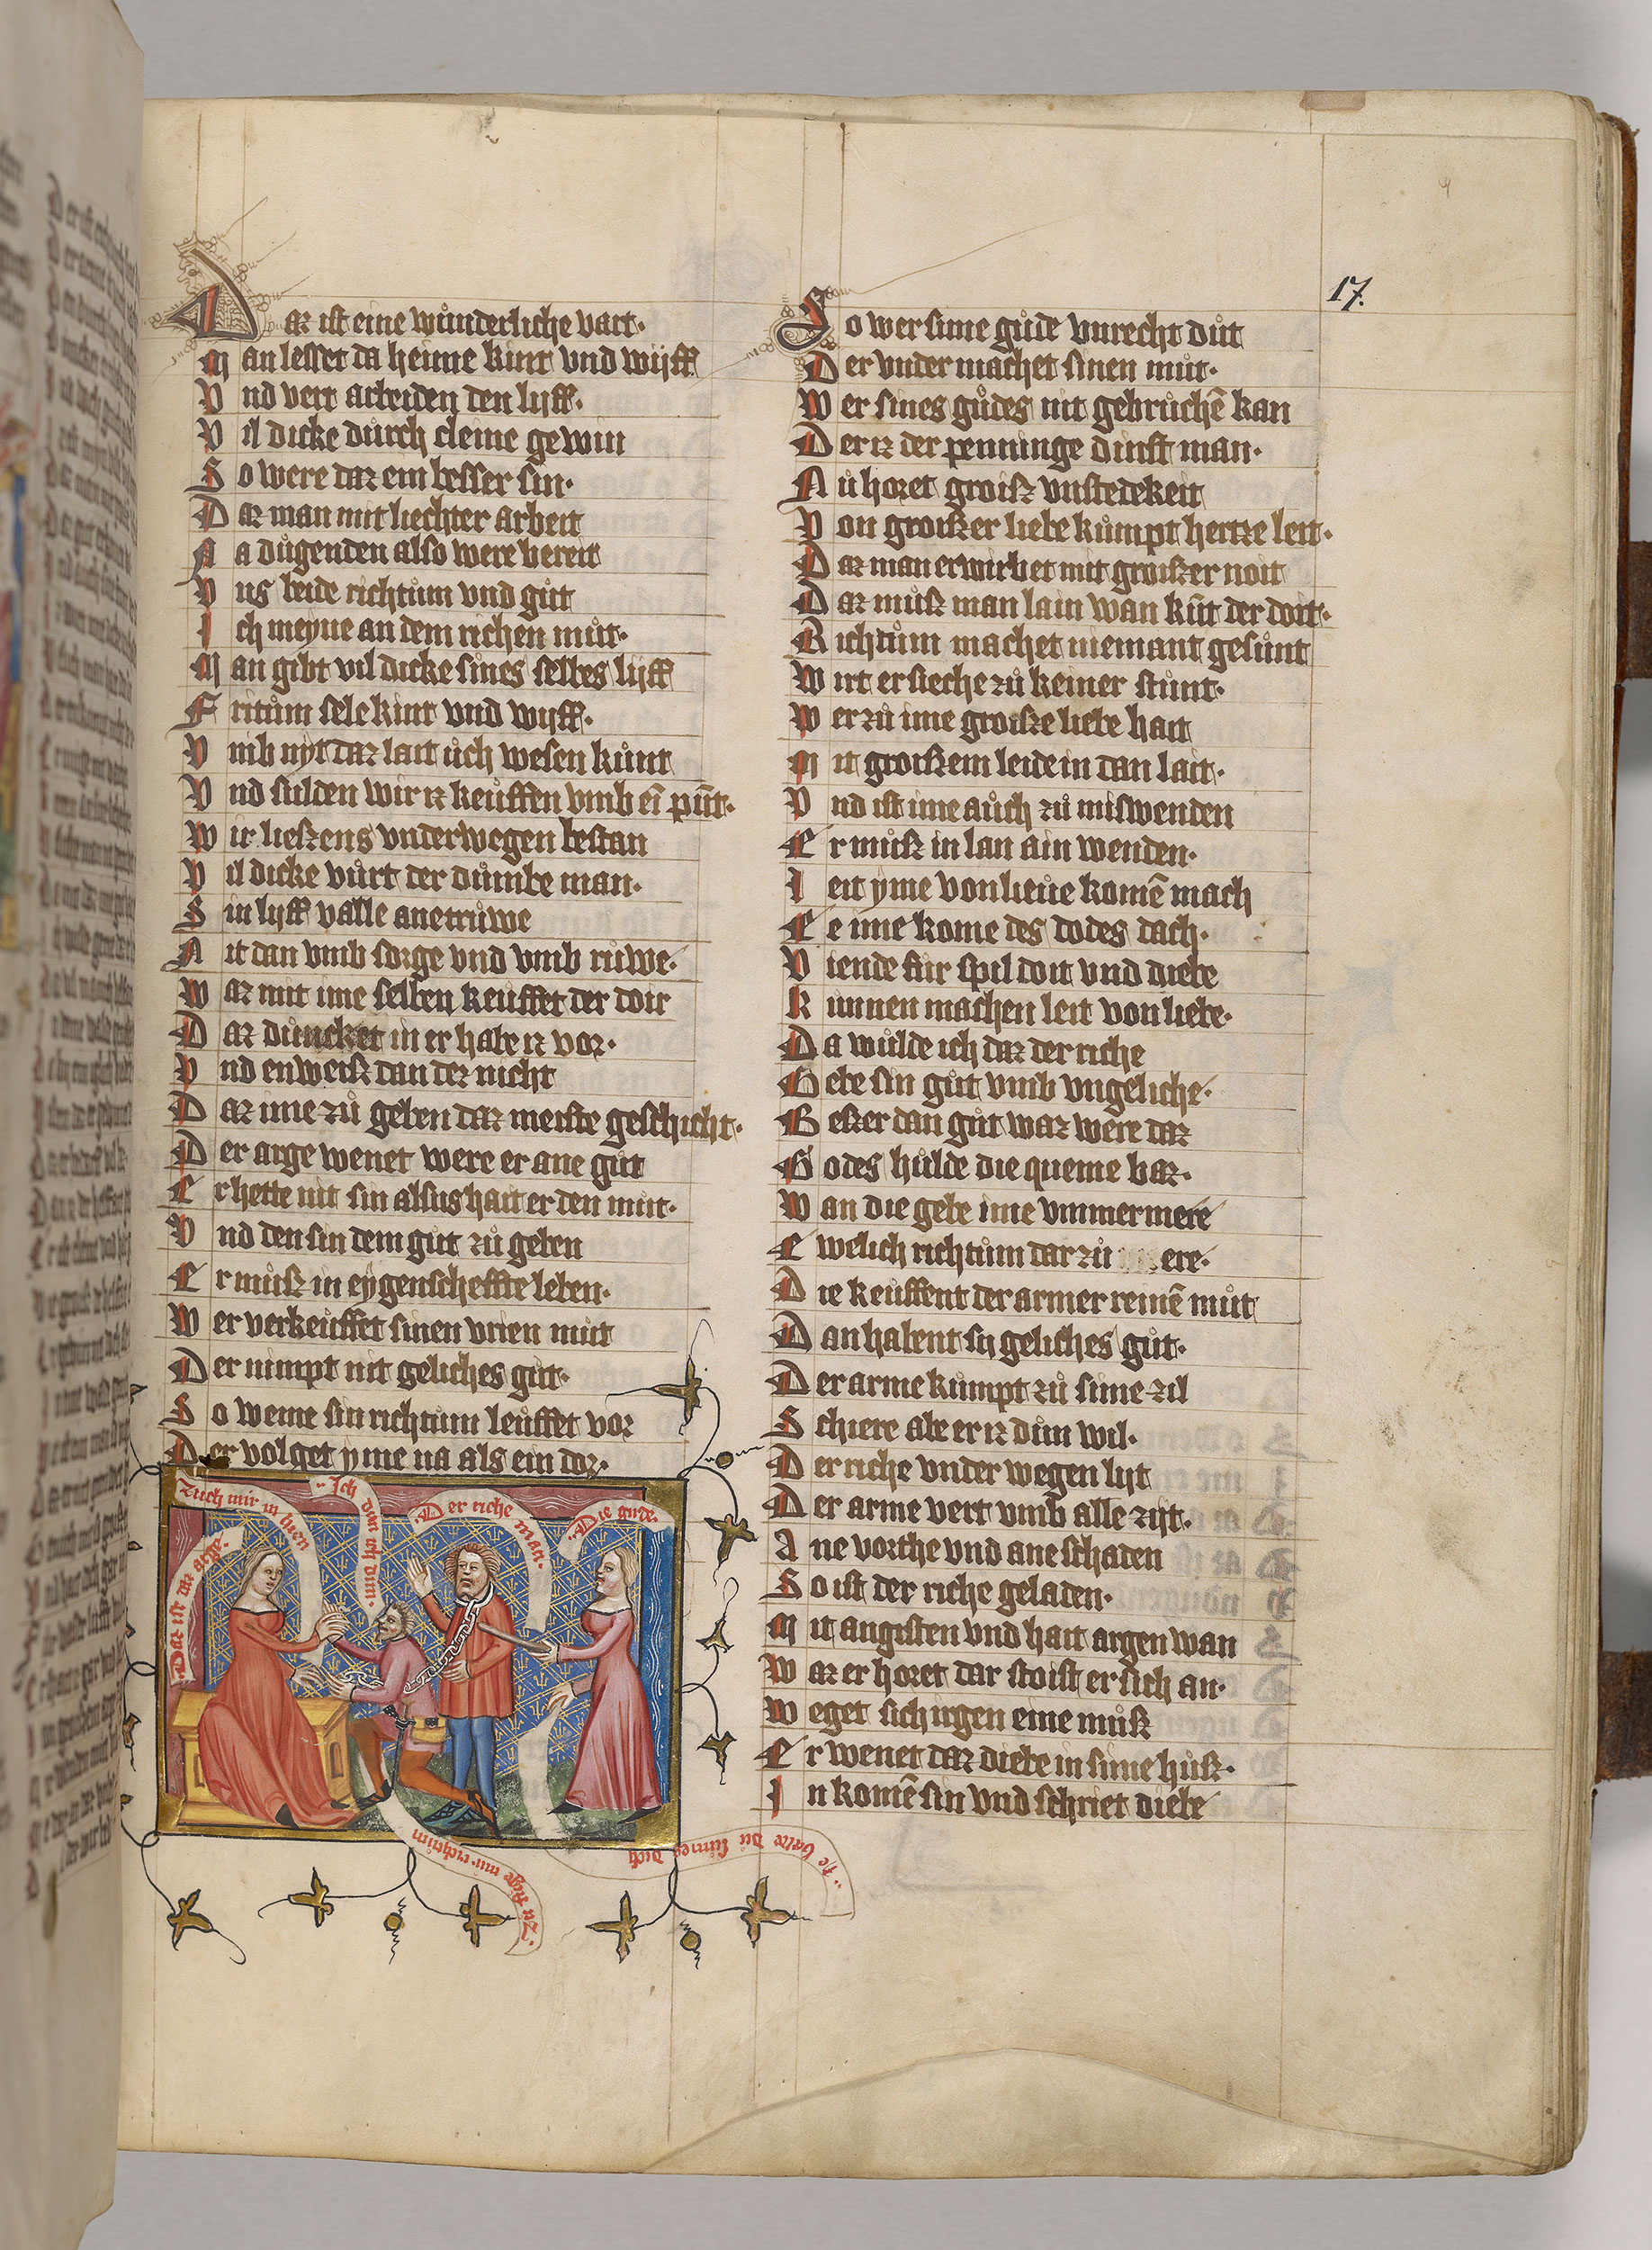 17.
Daz ist eine wůnderliche vart·
Man lesset da heime kint vnd wijff
Vnd vert arbeiden den lijff·
Vil dicke důrch cleine gewin
So were daz ein besser sin·
Daz man mit liechter arbeit
Na důgenden also were bereit
Vns beide richtům vnd gůt
Ich meyne an dem richen můt·
Man gibt vil dicke sines selbes lijff
Fritům sele kint vnd wijff·
Vmb nyt daz lait ůch wesen kůnt
Vnd sulden wir iz keůffen vmb eī pūt·
Wir lieszens vnderwegen bestan
Vil dicke vůrt der důmbe man·
Sin lijff valle ane trůwe
Nit dan vmb sorge vnd vmb růwe·
Waz mit ime selben keuffet der doir
Daz důncket in er habe iz vor·
Vnd enweisz dan der nicht
Daz ime zů geben daz meiste geschicht·
Der arge wenet were er ane gůt
Er hette nit sin alsus hait er den můt·
Vnd den sin dem gůt zů geben
Er můsz in eygenscheffte leben·
Wer verkeůffet sinen vrien můt
Der nimpt nit geliches gůt·
So weme sin richtům leůffet vor
Der volget yme na als ein dor·
Zuch mir in hien
Ich dan ich bin·
Der riche man·
Die gude·
Daz ist die arge·
Zů sige mir richtům
So wer sime gůde vnrecht důt
Der vnder machet sinen můt·
Wer sines gůdes nit gebrůchē kan
Der iz der penninge dinst man·
Nů horet groisz vnstedekeit
Von groiszer liebe kůmpt hertze leit·
Daz man erwirbet mit groiszer noit
Daz můsz man lain wan kūt der doit·
Richtům machet niemant gesůnt
Wirt er sieche zů keiner stůnt·
Wer zů ime groisze liebe hait
Mit groiszem leide in dan lait·
Vnd ist ime aůch zů miswenden
Er můsz in lan ain wenden·
Leit yme von lieue komē mach
Ee ime kome des dodes dach·
Viende für spil doit vnd diebe
Kunnen machen leit von liebe·
Da wůlde ich daz der riche
Gebe sin gůt vmb vngeliche·
Beszer dan gůt waz were daz
Godes hůlde die queme baz·
Wan die gebe ime vmmermere
Ewelich richtům dar zů ere·
Die keuffent der armer reinē můt
Dan habent sy geliches gůt·
Der arme kůmpt zů sime zil
Schiere abe er iz důn wil·
Der riche vnder wegen lijt
Der arme vert vmb alle zijt·
Ane vorthe vnd ane schaden
So ist der riche geladen·
Mit angisten vnd hait argen wan
Waz er horet dar stoist er sich an·
Weget sich irgen eine můsz
Er wenet daz diebe in sime hůsz·
In komē sin vnd schriet diebe